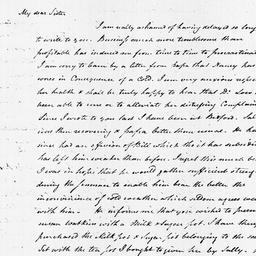 My dear Sister
I am really ashamed of having delayed so long
to write to you. Business much more troublesome than
profitable has induced me from time to time to procrastinate
I am sorry to learn by a letter from Papa that Nancy has
worse in Consequence of a Cold. I am very anxious
her health & shall be truly happy to hear that Dr
been able to cure or to alleviate her distressing Complain
Since I wrote to you last I have been at Bedford.
then recovering & Papa better than usual. He ha
since had an of Bill which tho it has subsided
has left him weaker than before. I regret this much be
I was in hopes that he would gather sufficient stren
during the summer to enable him bear the better the
inconvenience of cold weather which seldom agrees we
with him. He informs me that you wished to
mean with a Milk & Sugar pot. I have the
purchased the Milk pot & Sugar pot belonging to the
Set with the tea pot I bought to given her by Sally.